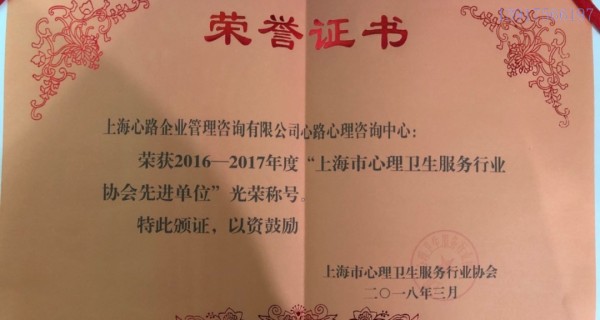 荣誉证书
上海心路企业管理咨询有限公司心路心理咨询中心：
荣获2016—2017年度“上海市心理卫生服务行业
协会先进单位”光荣称号。
特此颁证，以资鼓励
上海市心理卫生服务行业协会
二〇一八年三月